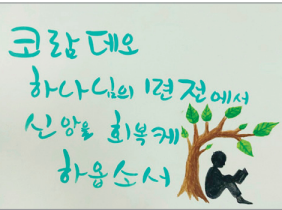 코람데오
하나님의 면전에서
신앙을 회복케
하옵소서